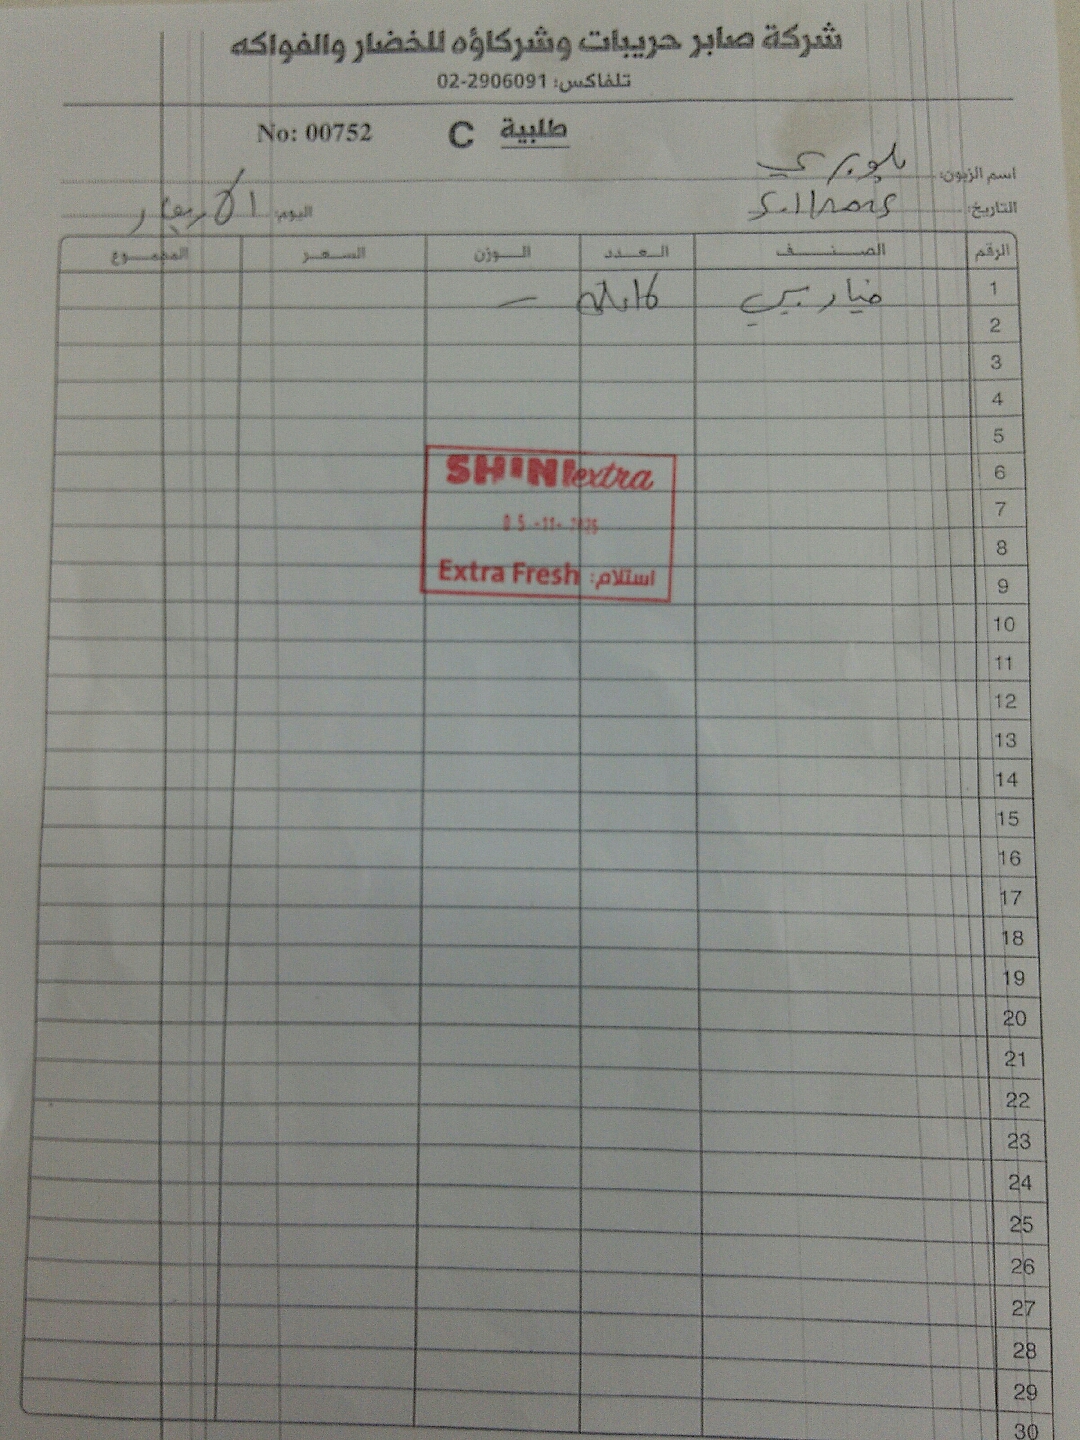 شركة صابر حريبات وشركاؤه للخضار والفواكه
تلفاكس: 02-2906091
طلبية C No: 00752
اسم الزبون:
التاريخ: 5.11.2025 اليوم: الاربعاء
الرقم الصنف العدد الوزن السعر المجموع
1 خيار بيبي —
2
3
4
5
6
7
8
9
10
11
12
13
14
15
16
17
18
19
20
21
22
23
24
25
26
27
28
29
30
SHINI extra
05-11-
Extra Fresh استلام: